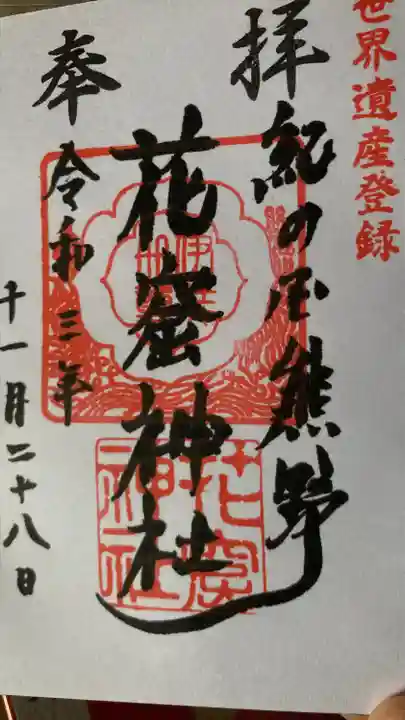 世界遺産登録
奉拝
紀の国熊野
花窟神社
令和三年
十一月二十八日
花窟神社